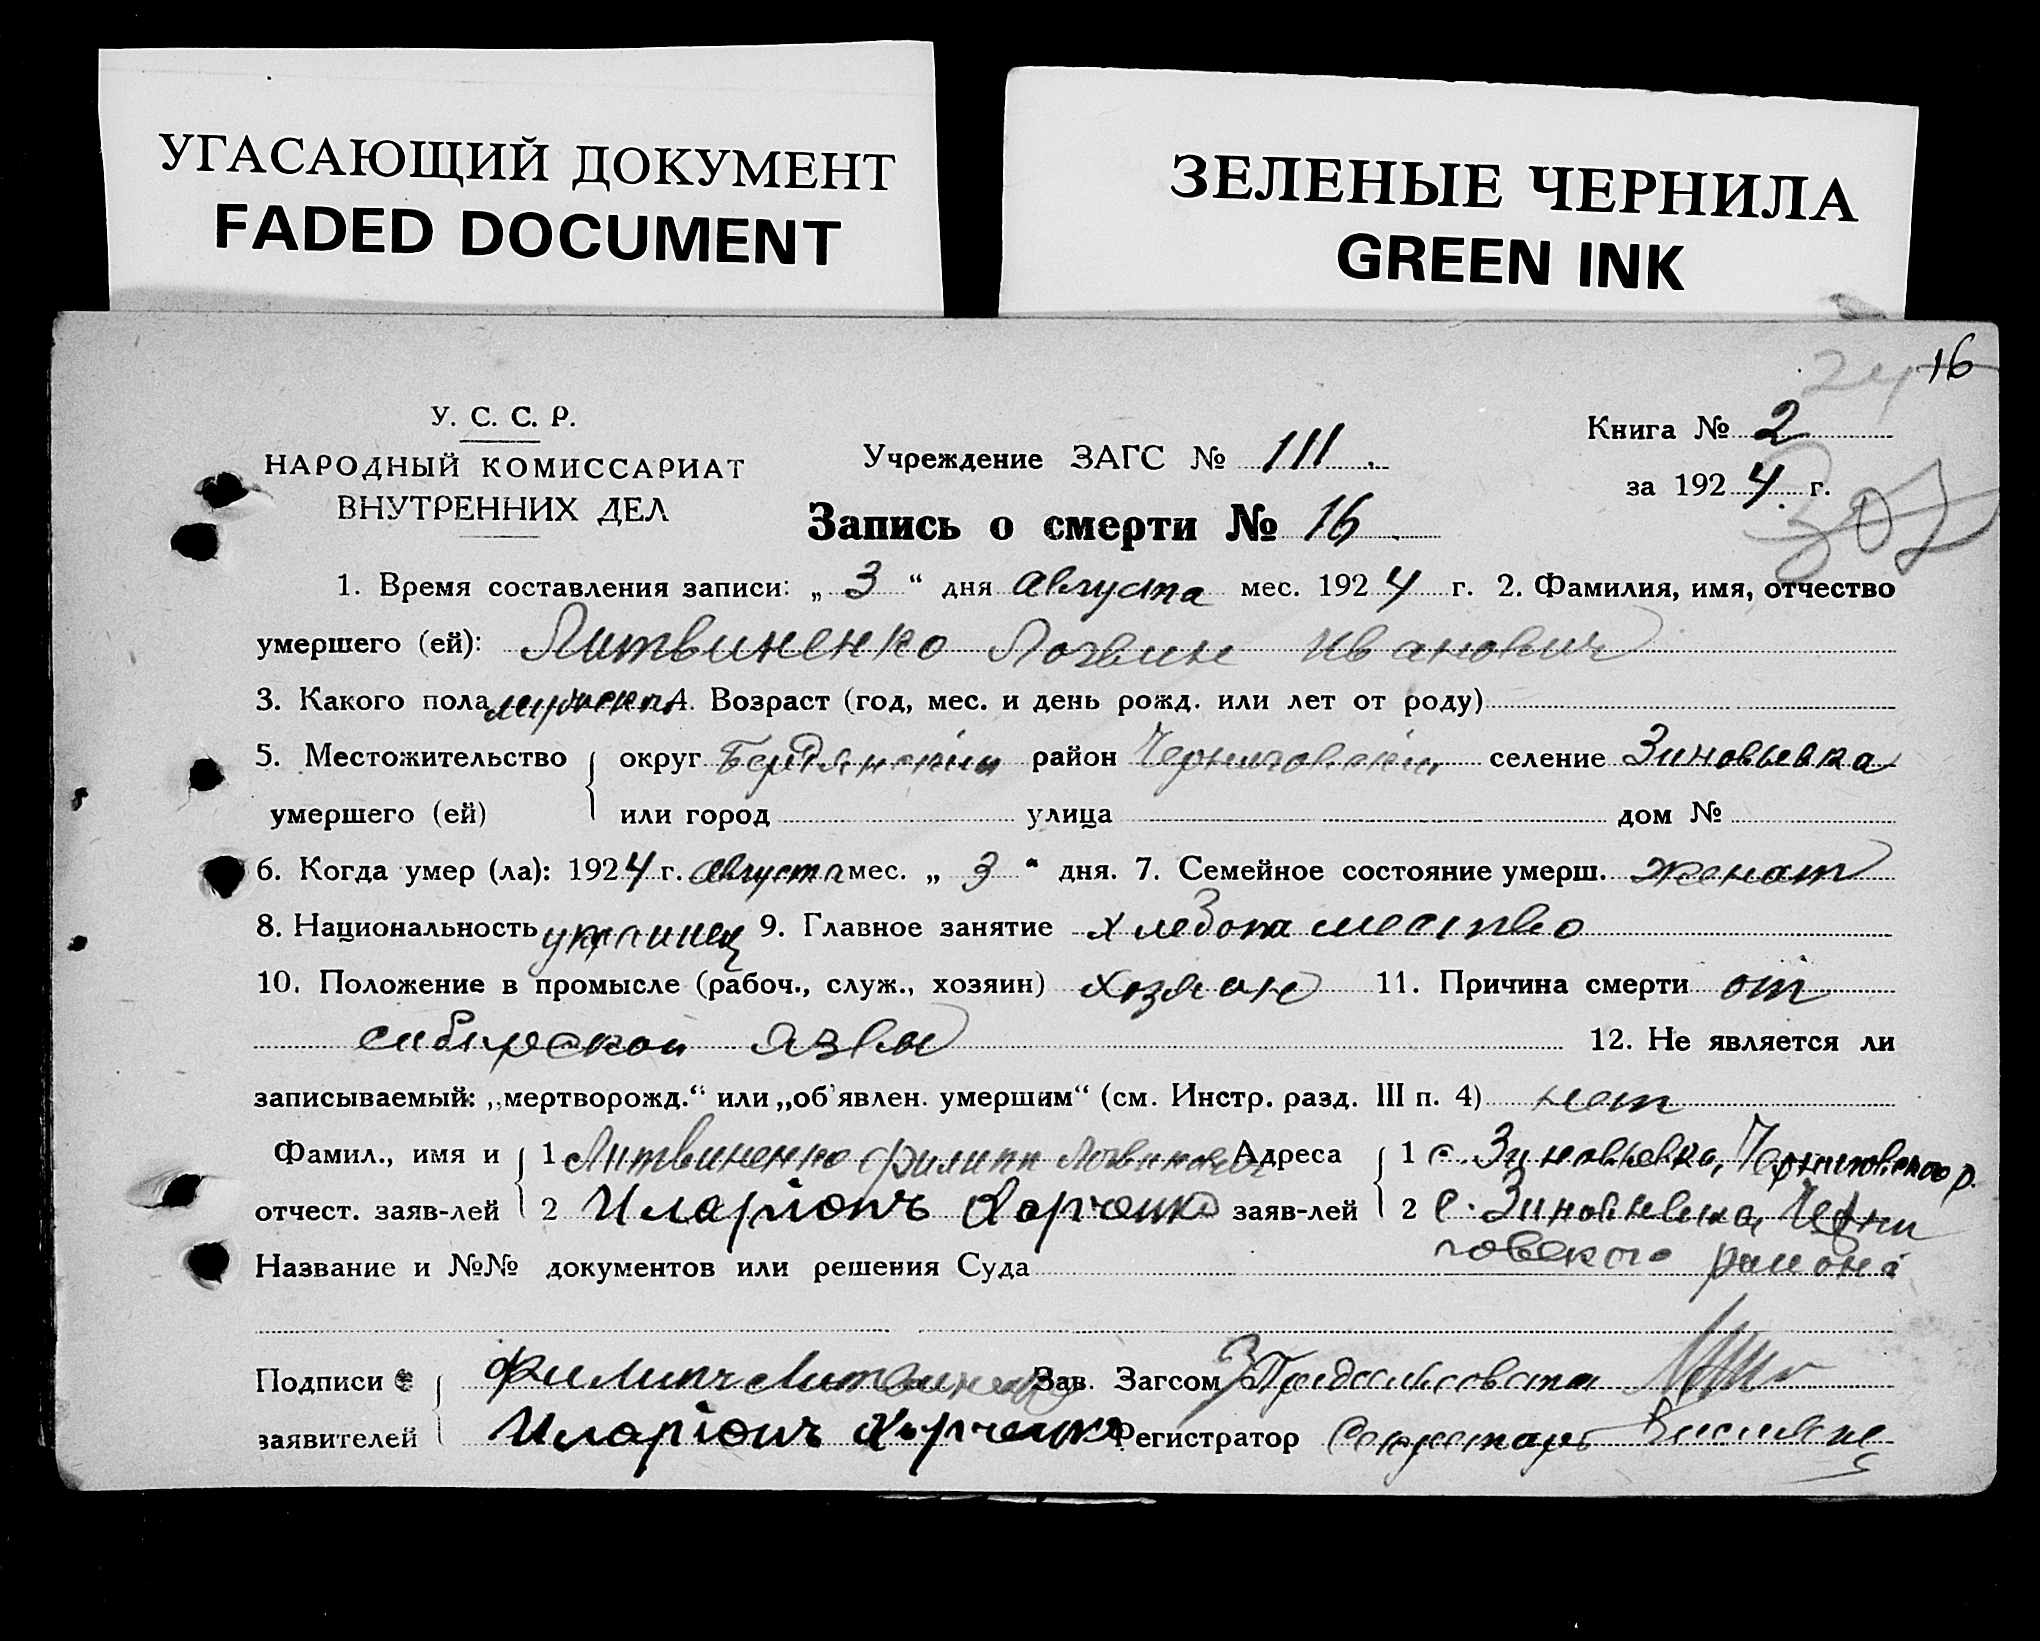 УГАСАЮЩИЙ ДОКУМЕНТ
FADED DOCUMENT
ЗЕЛЕНЫЕ ЧЕРНИЛА
GREEN INK
24 16
У. С. С. Р.
НАРОДНЫЙ КОМИССАРИАТ
ВНУТРЕННИХ ДЕЛ
Учреждение ЗАГС № 111.
Книга № 2
за 1924 г.
307
Запись о смерти № 16
1. Время составления записи: „ 3 “ дня Августа мес. 1924 г. 2. Фамилия, имя, отчество
умершего (ей): Литвиненко Логвин Иванович
3. Какого пола мужского 4. Возраст (год, мес. и день рожд. или лет от роду)
5. Местожительство округ Бердянский район Черниговский селение Зиновьевка
умершего (ей) или город улица дом №
6. Когда умер (ла): 1924 г. Августа мес. „ 3 “ дня. 7. Семейное состояние умерш. женат
8. Национальность украинец 9. Главное занятие хлебопашество
10. Положение в промысле (рабоч., служ., хозяин) хозяин 11. Причина смерти от
сибирской язвы 12. Не является ли
записываемый: „мертворожд.“ или „об'явлен. умершим“ (см. Инстр. разд. III п. 4) нет
Фамил., имя и 1 Литвиненко Филипп Логвинович Адреса 1 с. Зиновьевка, Черниговского р.
отчест. заяв-лей 2 Иларіонъ Харченко заяв-лей 2 с. Зиновьевка, Черни
говского района
Название и №№ документов или решения Суда
Подписи Филипъ Литвиненко Зав. Загсом Предсельсовета
заявителей Иларіонъ Харченко Регистратор Секретарь